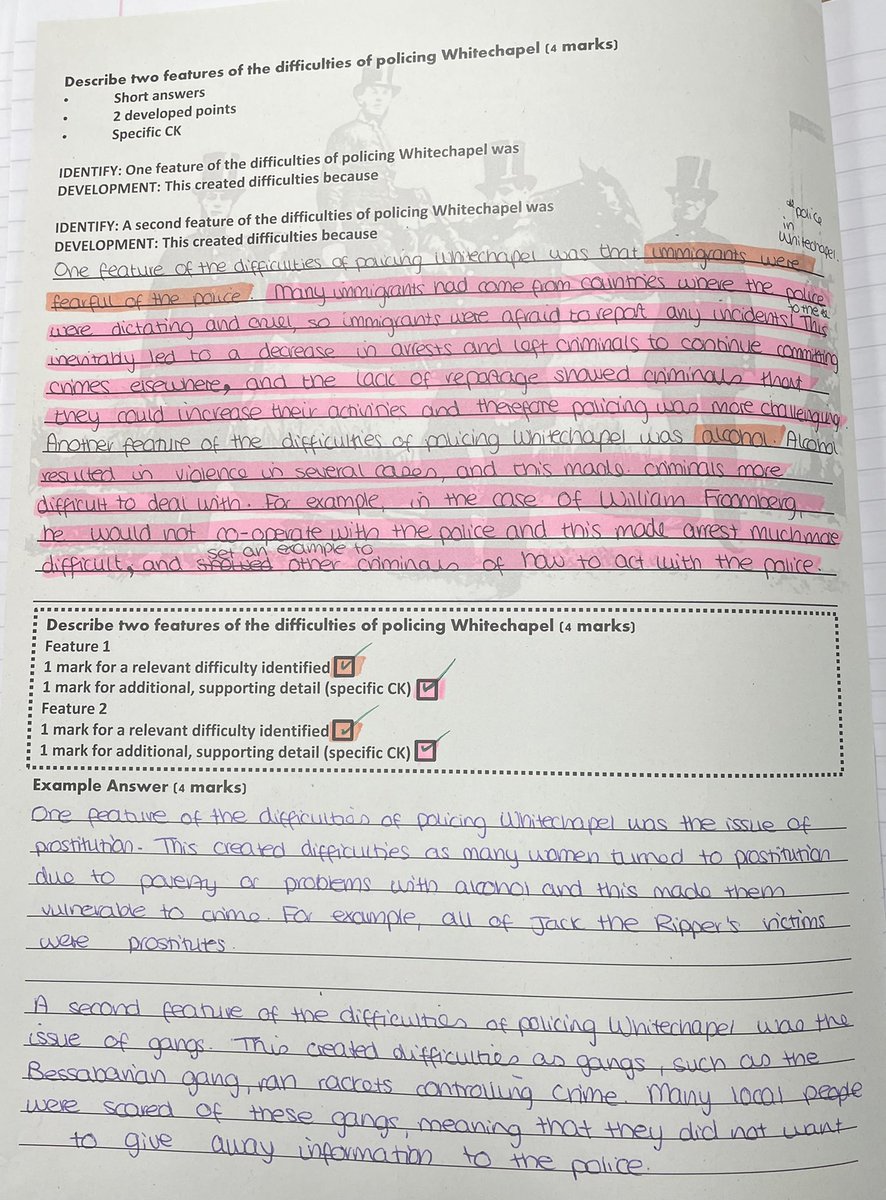 Describe two features of the difficulties of policing Whitechapel (4 marks)
• Short answers
• 2 developed points
• Specific CK
IDENTIFY: One feature of the difficulties of policing Whitechapel was
DEVELOPMENT: This created difficulties because
IDENTIFY: A second feature of the difficulties of policing Whitechapel was
DEVELOPMENT: This created difficulties because
police
in
Whitechapel.
One feature of the difficulties of policing Whitechapel was that immigrants were
fearful of the police. Many immigrants had come from countries where the police
to the
were dictating and cruel, so immigrants were afraid to report any incidents! This
inevitably led to a decrease in arrests and left criminals to continue committing
crimes elsewhere, and the lack of reportage showed criminals that
they could increase their activities and therefore policing was more challenging.
Another feature of the difficulties of policing Whitechapel was alcohol. Alcohol
resulted in violence in several cases, and this made criminals more
difficult to deal with. For example, in the case of William Froomberg,
he would not co-operate with the police and this made arrest much more
set an example to
difficult, and showed other criminals of how to act with the police.
Describe two features of the difficulties of policing Whitechapel (4 marks)
Feature 1
1 mark for a relevant difficulty identified
1 mark for additional, supporting detail (specific CK)
Feature 2
1 mark for a relevant difficulty identified
1 mark for additional, supporting detail (specific CK)
Example Answer (4 marks)
One feature of the difficulties of policing Whitechapel was the issue of
prostitution. This created difficulties as many women turned to prostitution
due to poverty or problems with alcohol and this made them
vulnerable to crime. For example, all of Jack the Ripper's victims
were prostitutes.
A second feature of the difficulties of policing Whitechapel was the
issue of gangs. This created difficulties as gangs, such as the
Bessabarian gang, ran rackets controlling crime. Many local people
were scared of these gangs, meaning that they did not want
to give away information to the police.